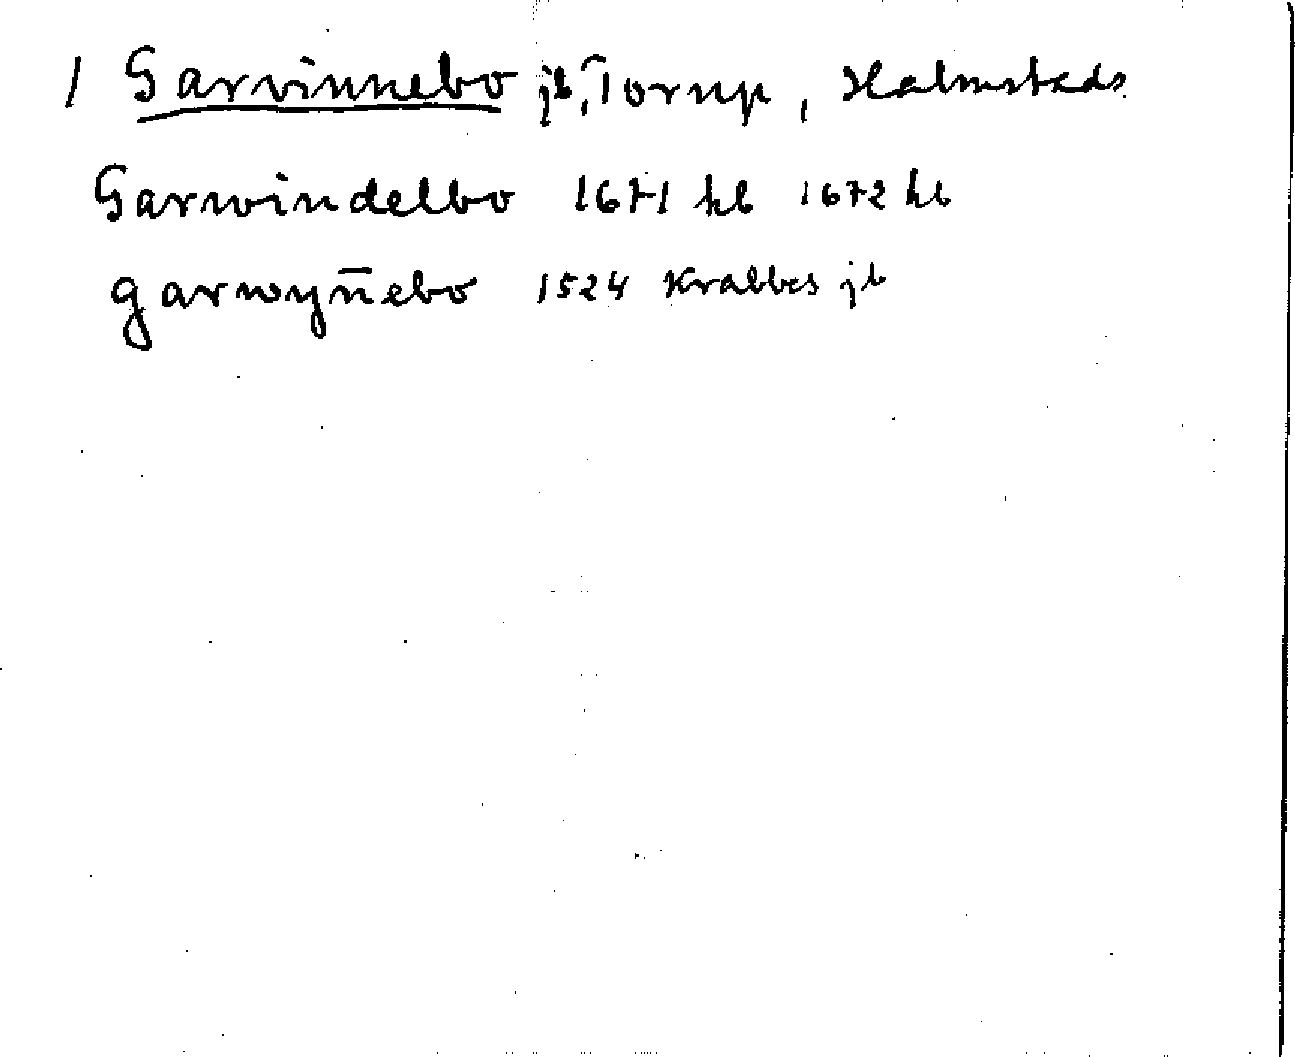 1 Garvinnebo jb, Torup, Halmstads
Garwindelbo 1671 hb 1672 hb
garwyn̄ebo 1524 Krabbes jb